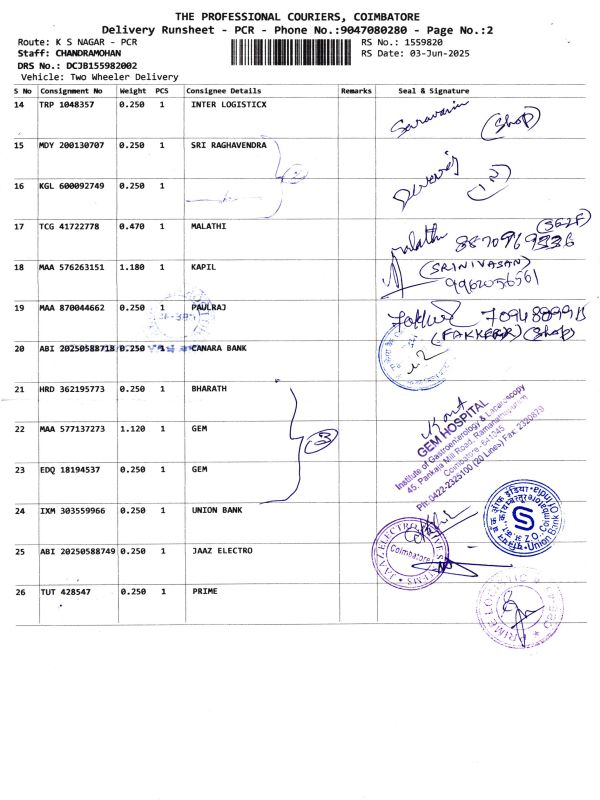 THE PROFESSIONAL COURIERS, COIMBATORE
Delivery Runsheet - PCR - Phone No.:9047080280 - Page No.:2
Route: K S NAGAR - PCR RS No.: 1559820
Staff: CHANDRAMOHAN RS Date: 03-Jun-2025
DRS No.: DCJB155982002
Vehicle: Two Wheeler Delivery
S No Consignment No Weight PCS Consignee Details Remarks Seal & Signature
14 TRP 1048357 0.250 1 INTER LOGISTICX
Saravanan (Shop)
15 MDY 200130707 0.250 1 SRI RAGHAVENDRA
2
16 KGL 600092749 0.250 1
17 TCG 41722778 0.470 1 MALATHI
Malathi
18 MAA 576263151 1.180 1 KAPIL
(SRINIVASAN)
19 MAA 870044662 0.250 1 PAULRAJ
(Shop)
20 ABI 20250588718 0.250 1 CANARA BANK
21 HRD 362195773 0.250 1 BHARATH
22 MAA 577137273 1.120 1 GEM
3
GEM HOSPITAL
Institute of Gastroenterology & Laparoscopy
45, Pankaja Mill Road, Ramanathapuram
Coimbatore - 641045
Ph:0422-2325100 (20 Lines) Fax: 2320879
23 EDQ 18194537 0.250 1 GEM
24 IXM 303559966 0.250 1 UNION BANK
यूनियन बैंक ऑफ इंडिया
Union Bank Of India
25 ABI 20250588749 0.250 1 JAAZ ELECTRO
JAAZ ELECTRO
Coimbatore
26 TUT 428547 0.250 1 PRIME